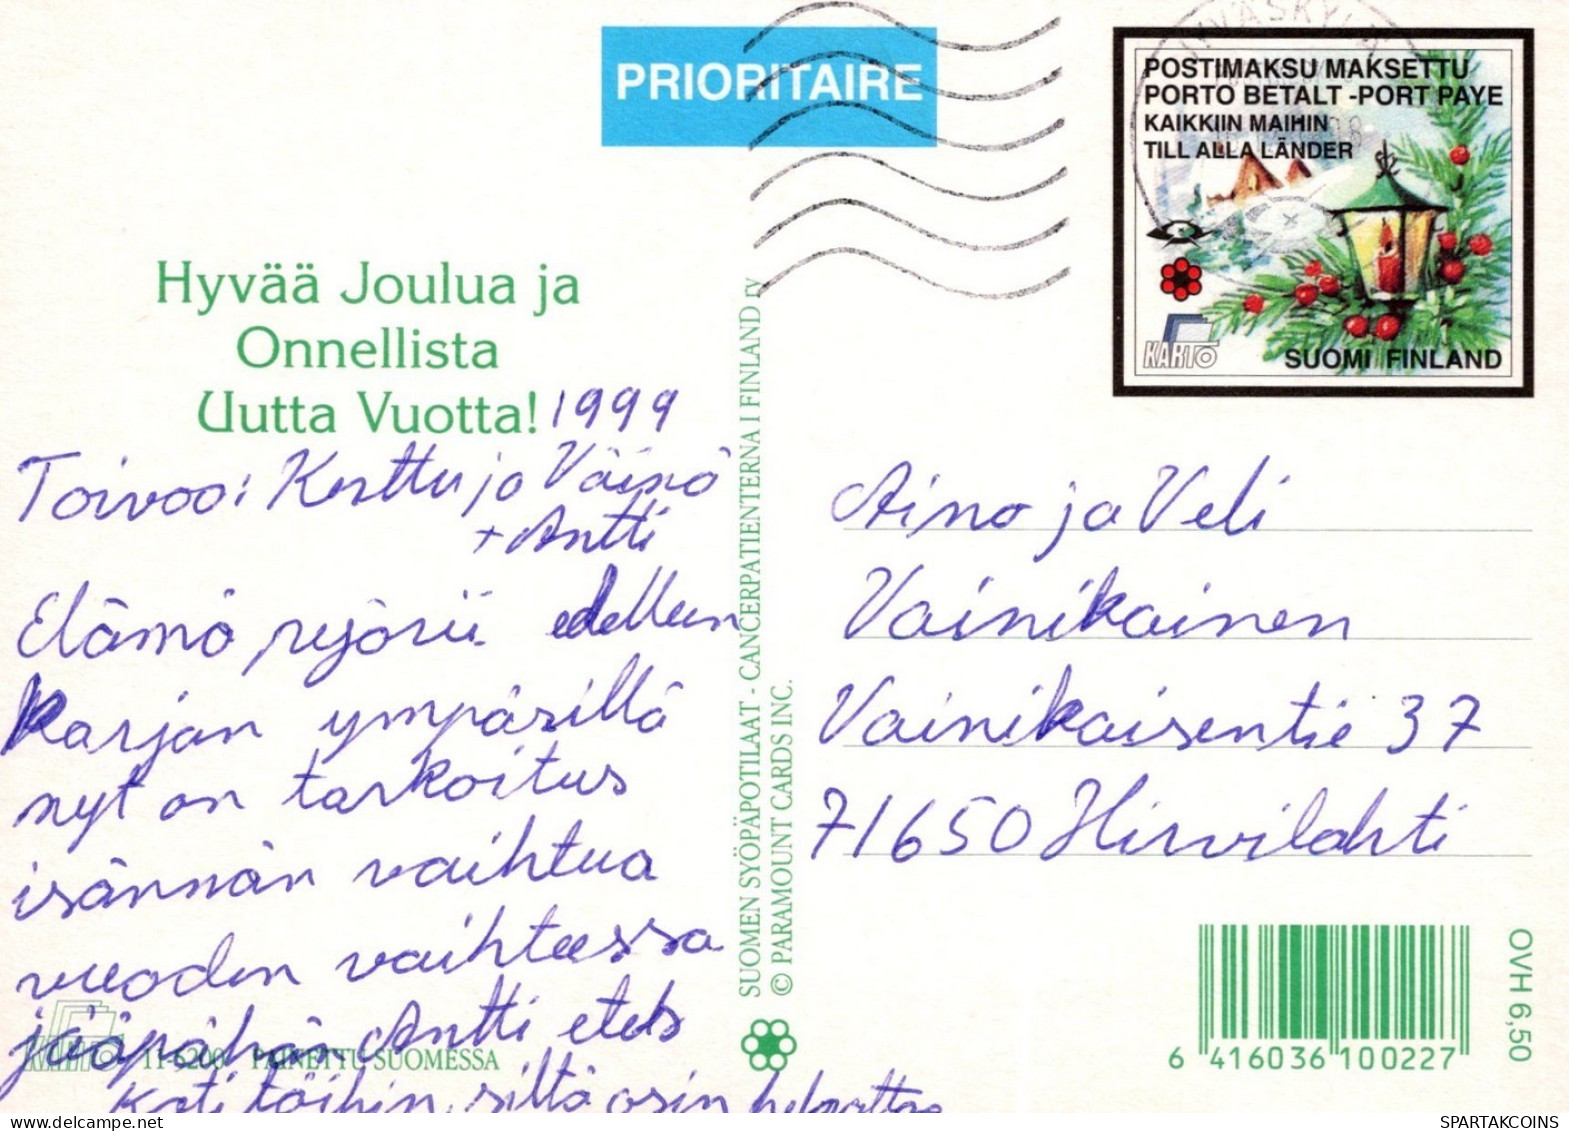 PRIORITAIRE
JYVÄSKYLÄ
POSTIMAKSU MAKSETTU
PORTO BETALT -PORT PAYE
KAIKKIIN MAIHIN
TILL ALLA LÄNDER
KARTO
SUOMI FINLAND
Hyvää Joulua ja
Onnellista
Uutta Vuotta! 1999
Toivoo: Kerttu ja Väinö
+ Antti
Elämä pyörii edelleen
Karjan ympärillä
nyt on tarkoitus
isännän vaihtua
vuoden vaihteessa
jääpähän Antti etels
Koti töihin, siltä osin helpottaa
Aino ja Veli
Vainikainen
Vainikaisentie 37
71650 Hirvilahti
SUOMEN SYÖPÄPOTILAAT - CANCERPATIENTERNA I FINLAND ry
© PARAMOUNT CARDS INC.
KARTO 11-6200 PAINETTU SUOMESSA
6 416036 100227
OVH 6,50
SPARTAKCOINS